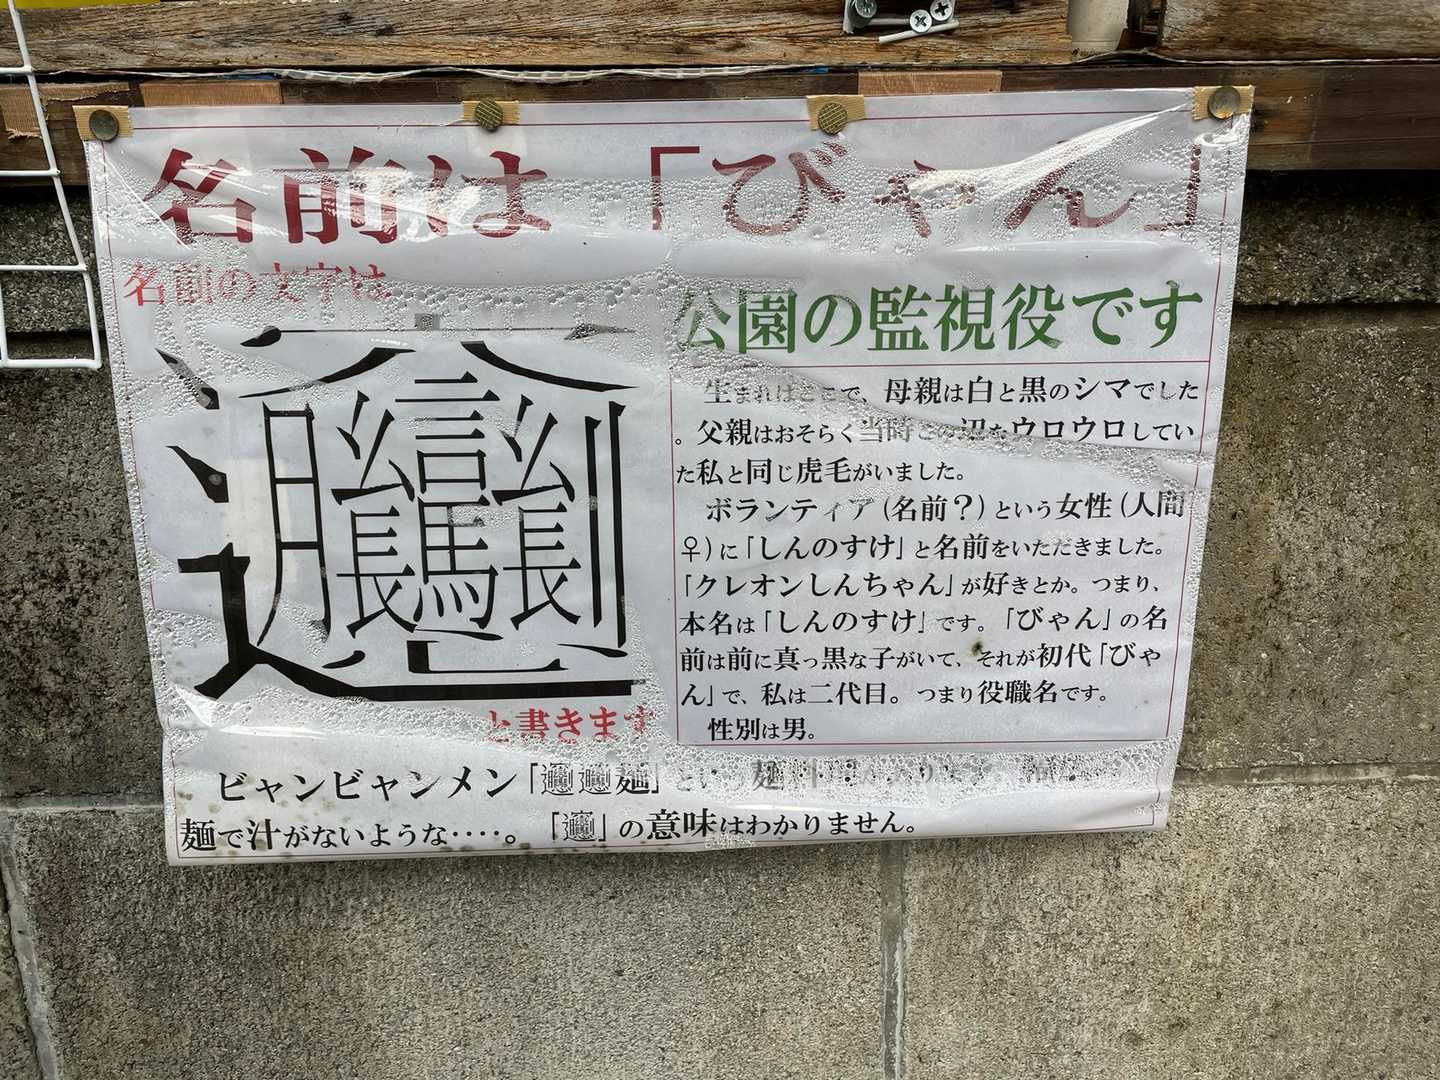 名前は「びゃん」
名前の文字は
𰻞
と書きます
公園の監視役です
生まれはここで、母親は白と黒のシマでした
。父親はおそらく当時この辺をウロウロしてい
た私と同じ虎毛がいました。
ボランティア(名前？)という女性(人間
♀)に「しんのすけ」と名前をいただきました。
「クレオンしんちゃん」が好きとか。つまり、
本名は「しんのすけ」です。「びゃん」の名
前は前に真っ黒な子がいて、それが初代「びゃ
ん」で、私は二代目。つまり役職名です。
性別は男。
ビャンビャンメン「𰻞𰻞麺」という麺料理があります。
麺で汁がないような‥‥。「𰻞」の意味はわかりません。